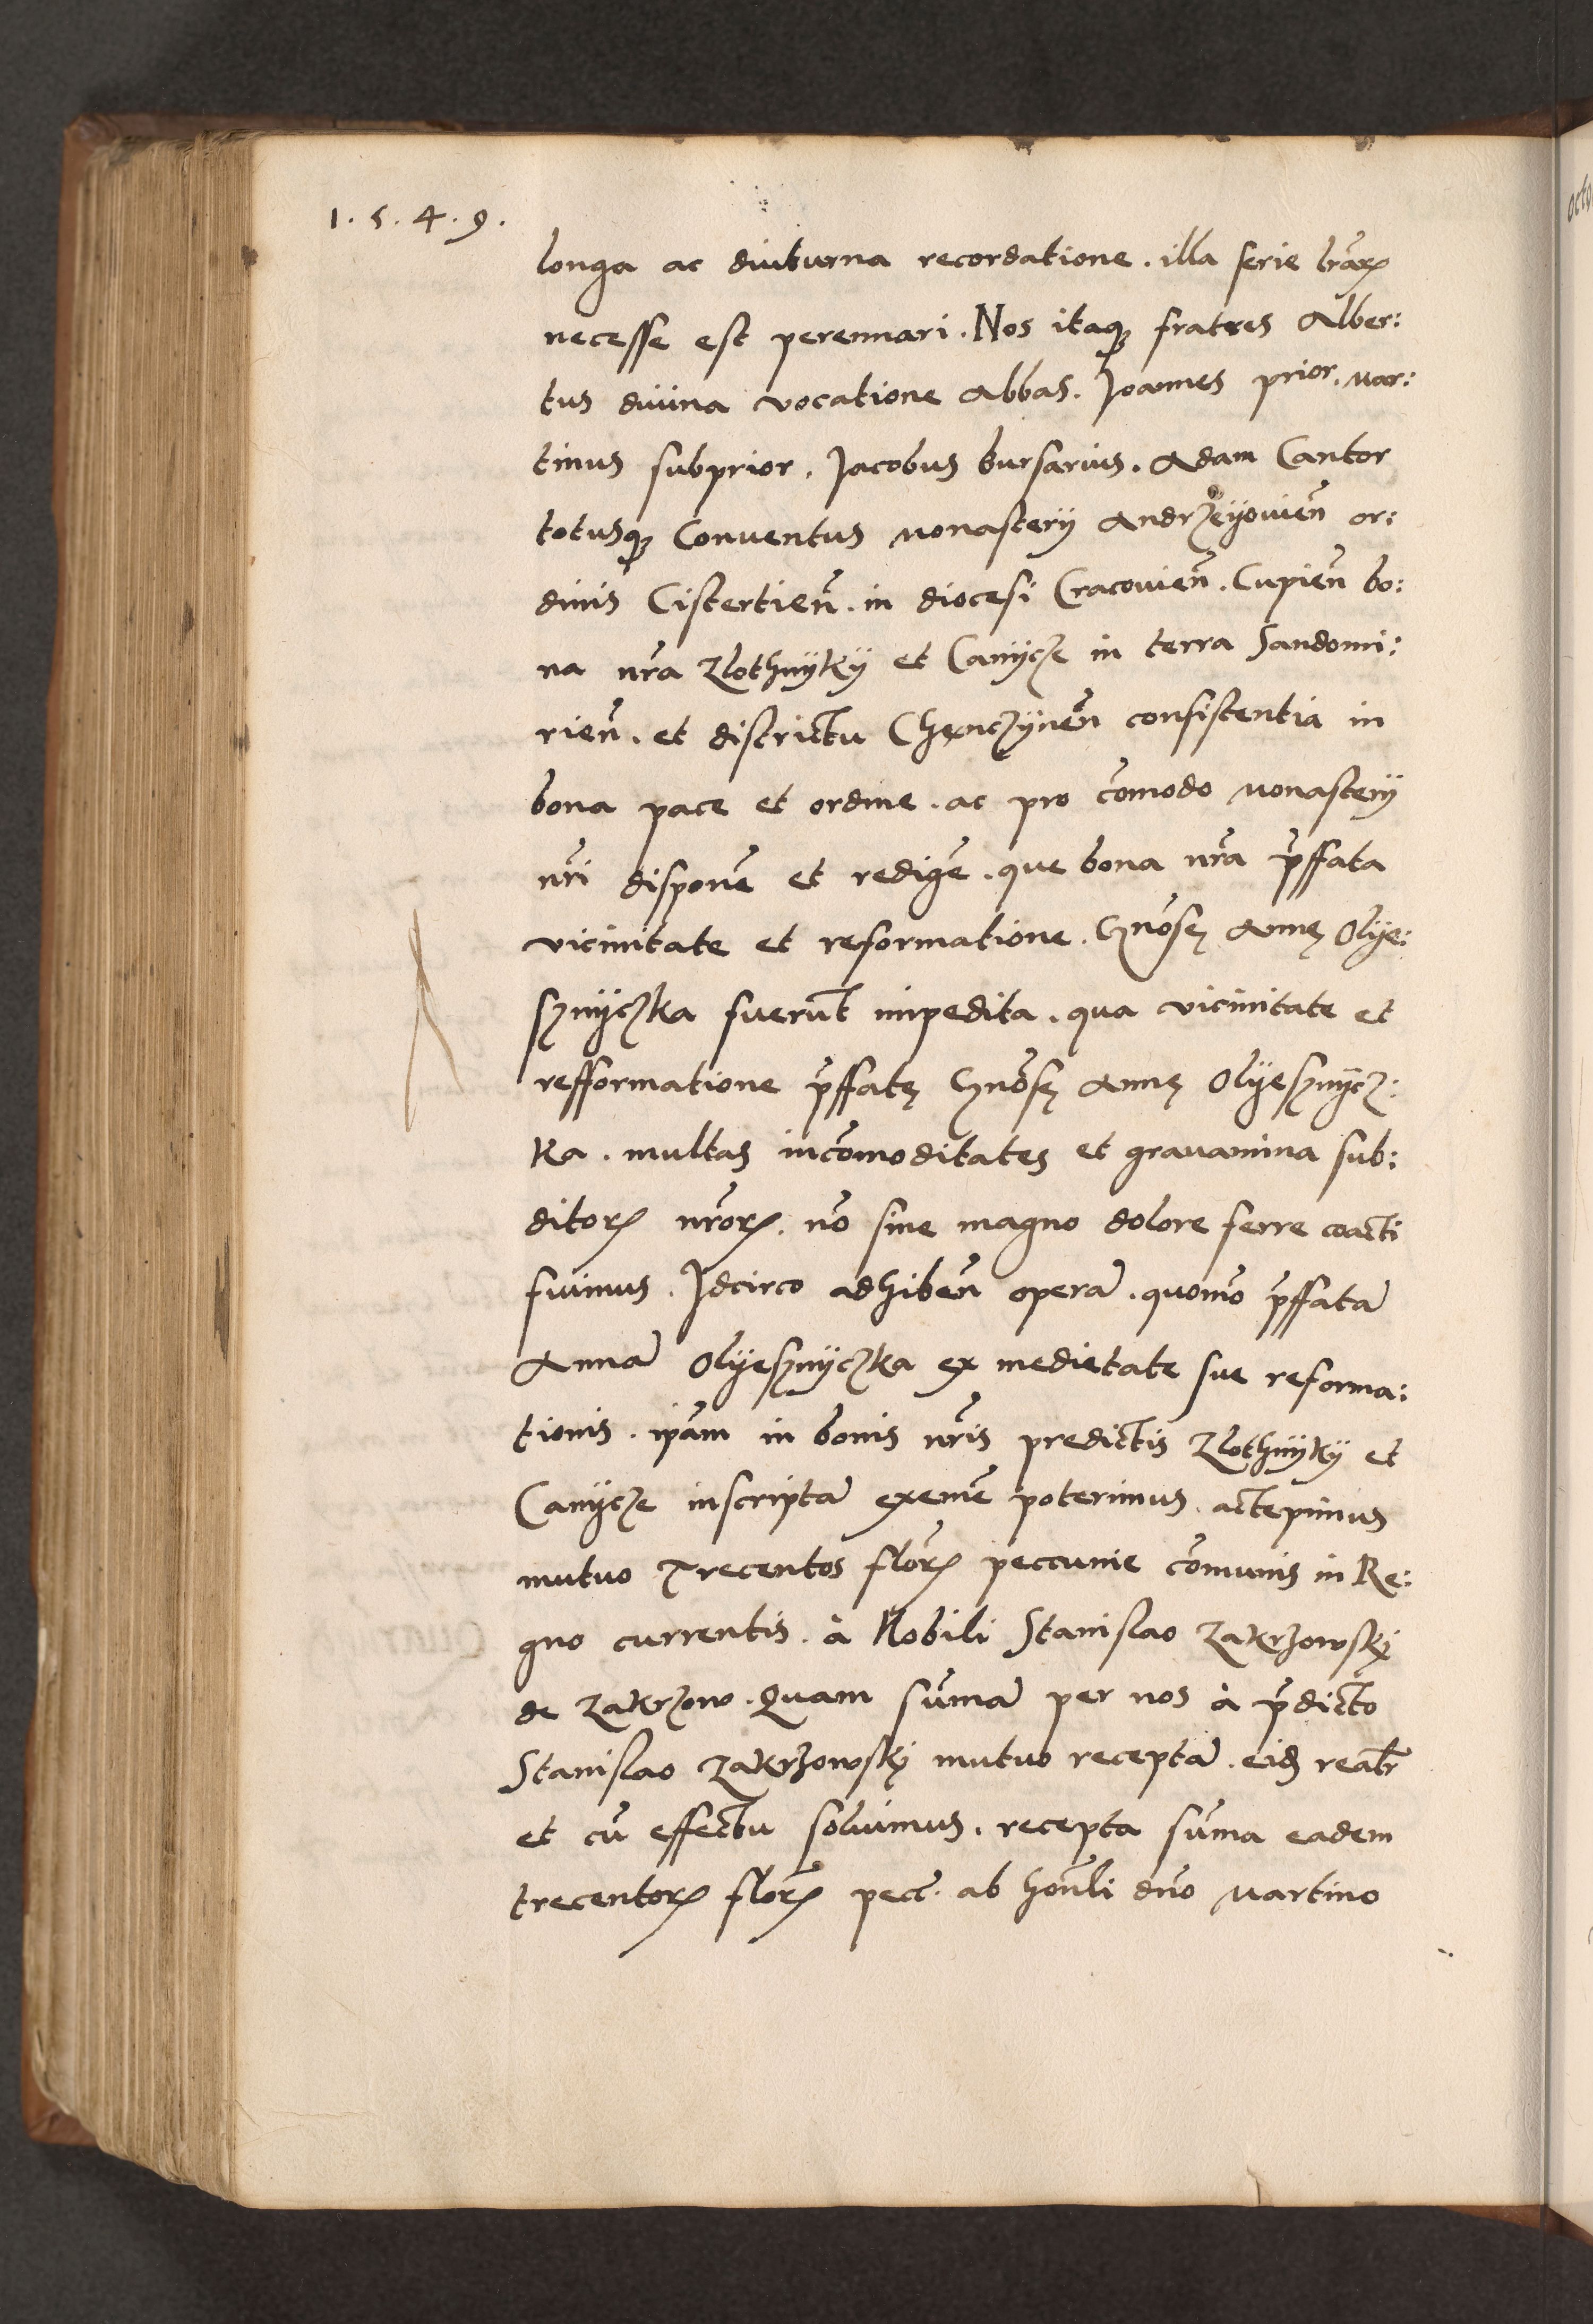 1.5.4.9.
longa ac diuturna recordatione. illa serie lrãrꝝ
necesse est perennari. Nos itaqꝫ fratres Alber:
tus diuina vocatione Abbas. Joannes prior. Mar:
tinus subprior. Jacobus bursarius. Adam Cantor
totusqꝫ Conuentus Monasterij Andrzeyouieñ or:
dinis Cistertieñ. in diocesi Cracouieñ. Cupieñ bo:
na nrã Zlothnyky et Canycze in terra Sandomi:
rieñ. et districtu Chenczyneñ consistentia in
bona pace et ordine. ac pro cõmodo Monasterij
nrĩ disponẽ et redigẽ. que bona nrã p̃ffata
vicinitate et reformatione. Gñosę Annę Olye:
sznyczka fuerũt impedita. qua vicinitate et
refformatione p̃ffatę Gñosę Annę Olyesznycz:
ka. multas incõmoditates et grauamina sub:
ditorꝝ nrõrꝝ. nõ sine magno dolore ferre coacti
fuimus. Idcirco adhibeñ operã. quomõ p̃ffatã
Annã Olyesznyczka ex medietate sue reforma:
tionis. ip̃am in bonis nrĩs predictis Zlothnyky et
Canycze inscriptã eximẽ poterimus. accepimus
mutuo Trecentos florꝝ peccunie cõmunis in Re:
gno currentis. à Nobili Stanislao Zakrzowskj
de Zakrzow. Quam sũmã per nos à p̃dicto
Stanislao Zakrzowskj mutuo receptã. eidẽ realr̃
et cũ effectu soluimus. recepta sũma eadem
trecentorꝝ florꝝ pecc̃. ab honᷓli dño Martino